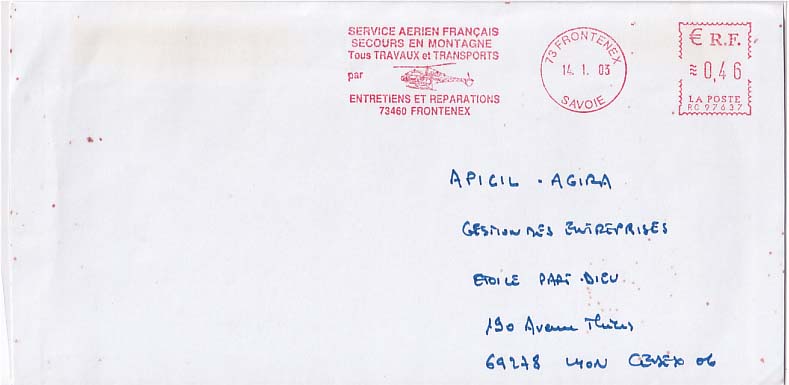 SERVICE AERIEN FRANÇAIS
SECOURS EN MONTAGNE
Tous TRAVAUX et TRANSPORTS
par
ENTRETIENS ET REPARATIONS
73460 FRONTENEX
73 FRONTENEX
14. 1. 03
SAVOIE
€ R.F.
≋ 0,46
LA POSTE
RC 97637
APICIL - AGIRA
GESTION DES ENTREPRISES
ETOILE PART-DIEU
190 Avenue Thiers
69278 LYON CEDEX 06